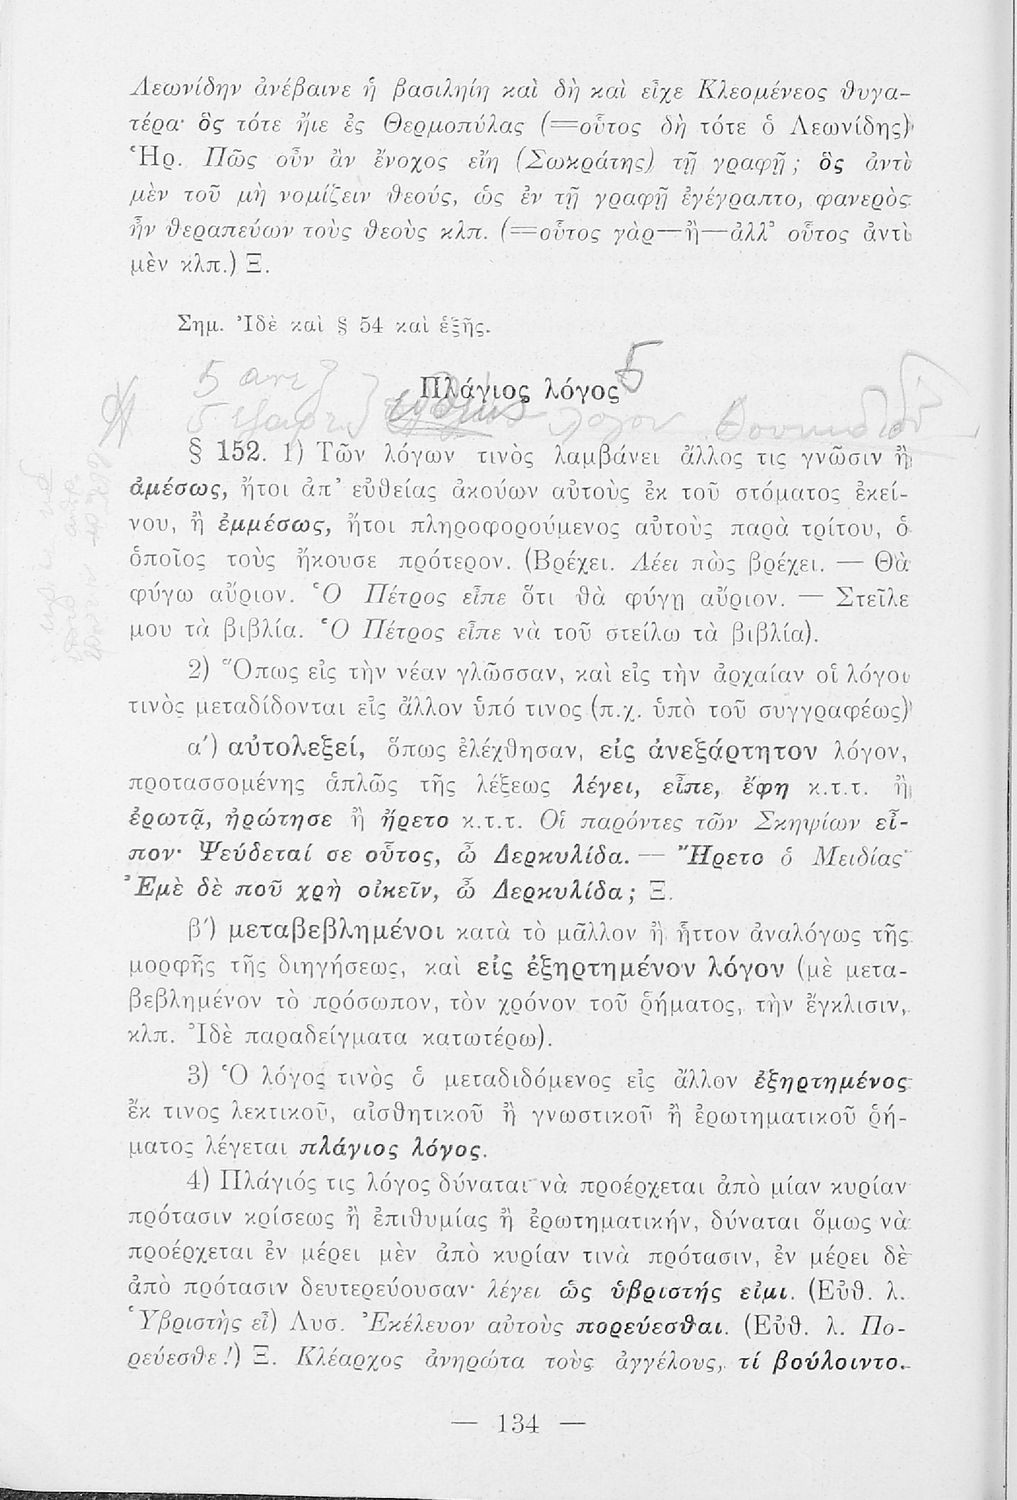 Λεωνίδην ἀνέβαινε ἡ βασιληίη καὶ δὴ καὶ εἶχε Κλεομένεος θυγα-
τέρα· ὃς τότε ἤιε ἐς Θερμοπύλας (=οὗτος δὴ τότε ὁ Λεωνίδης)
Ἡρ. Πῶς οὖν ἂν ἔνοχος εἴη (Σωκράτης) τῇ γραφῇ; ὃς ἀντὶ
μὲν τοῦ μὴ νομίζειν θεούς, ὡς ἐν τῇ γραφῇ ἐγέγραπτο, φανερὸς
ἦν θεραπεύων τοὺς θεοὺς κλπ. (=οὗτος γὰρ—ἢ—ἀλλ’ οὗτος ἀντὶ
μὲν κλπ.) Ξ.
Σημ. Ἰδὲ καὶ § 54 καὶ ἑξῆς.
Πλάγιος λόγος
§ 152. 1) Τῶν λόγων τινὸς λαμβάνει ἄλλος τις γνῶσιν ἢ
ἀμέσως, ἤτοι ἀπ’ εὐθείας ἀκούων αὐτοὺς ἐκ τοῦ στόματος ἐκεί-
νου, ἢ ἐμμέσως, ἤτοι πληροφορούμενος αὐτοὺς παρὰ τρίτου, ὁ
ὁποῖος τοὺς ἤκουσε πρότερον. (Βρέχει. Λέει πὼς βρέχει. — Θὰ
φύγω αὔριον. Ὁ Πέτρος εἶπε ὅτι θὰ φύγῃ αὔριον. — Στεῖλε
μου τὰ βιβλία. Ὁ Πέτρος εἶπε νὰ τοῦ στείλω τὰ βιβλία).
2) Ὅπως εἰς τὴν νέαν γλῶσσαν, καὶ εἰς τὴν ἀρχαίαν οἱ λόγοι
τινὸς μεταδίδονται εἰς ἄλλον ὑπό τινος (π.χ. ὑπὸ τοῦ συγγραφέως)
α΄) αὐτολεξεί, ὅπως ἐλέχθησαν, εἰς ἀνεξάρτητον λόγον,
προτασσομένης ἁπλῶς τῆς λέξεως λέγει, εἶπε, ἔφη κ.τ.τ. ἢ
ἐρωτᾷ, ἠρώτησε ἢ ἤρετο κ.τ.τ. Οἱ παρόντες τῶν Σκηψίων εἶ-
πον· Ψεύδεταί σε οὗτος, ὦ Δερκυλίδα. — Ἤρετο ὁ Μειδίας·
Ἐμὲ δὲ ποῦ χρὴ οἰκεῖν, ὦ Δερκυλίδα; Ξ.
β΄) μεταβεβλημένοι κατὰ τὸ μᾶλλον ἢ ἧττον ἀναλόγως τῆς
μορφῆς τῆς διηγήσεως, καὶ εἰς ἐξηρτημένον λόγον (μὲ μετα-
βεβλημένον τὸ πρόσωπον, τὸν χρόνον τοῦ ῥήματος, τὴν ἔγκλισιν,
κλπ. Ἰδὲ παραδείγματα κατωτέρω).
3) Ὁ λόγος τινὸς ὁ μεταδιδόμενος εἰς ἄλλον ἐξηρτημένος
ἔκ τινος λεκτικοῦ, αἰσθητικοῦ ἢ γνωστικοῦ ἢ ἐρωτηματικοῦ ῥή-
ματος λέγεται πλάγιος λόγος.
4) Πλάγιός τις λόγος δύναται νὰ προέρχεται ἀπὸ μίαν κυρίαν
πρότασιν κρίσεως ἢ ἐπιθυμίας ἢ ἐρωτηματικήν, δύναται ὅμως νὰ
προέρχεται ἐν μέρει μὲν ἀπὸ κυρίαν τινὰ πρότασιν, ἐν μέρει δὲ
ἀπὸ πρότασιν δευτερεύουσαν· λέγει ὡς ὑβριστής εἰμι. (Εὐθ. λ.
Ὑβριστὴς εἶ) Λυσ. Ἐκέλευον αὐτοὺς πορεύεσθαι. (Εὐθ. λ. Πο-
ρεύεσθε!) Ξ. Κλέαρχος ἀνηρώτα τοὺς ἀγγέλους, τί βούλοιντο.
— 134 —